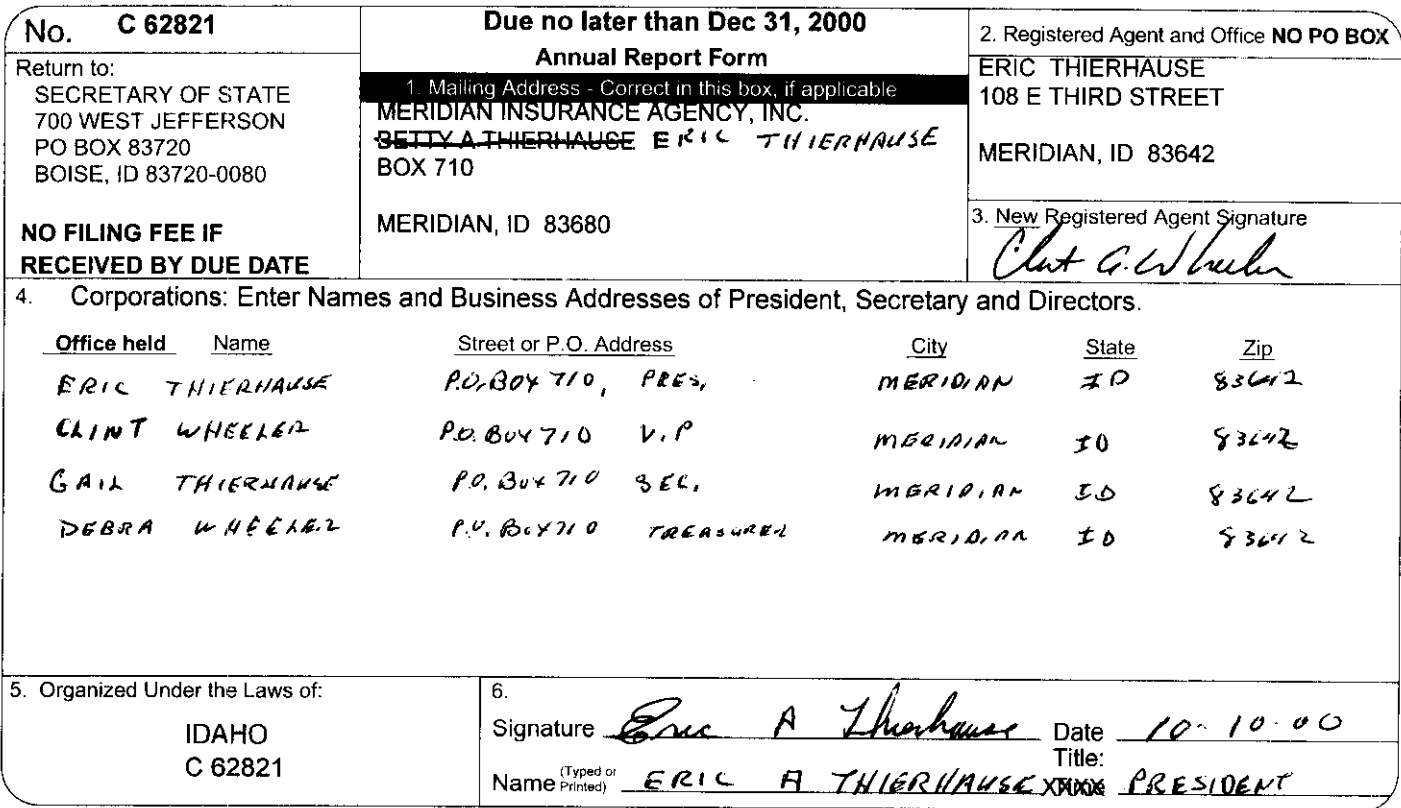 No. C 62821
Return to:
SECRETARY OF STATE
700 WEST JEFFERSON
PO BOX 83720
BOISE, ID 83720-0080
NO FILING FEE IF
RECEIVED BY DUE DATE
Due no later than Dec 31, 2000
Annual Report Form
1. Mailing Address - Correct in this box, if applicable
MERIDIAN INSURANCE AGENCY, INC.
BETTY A THIERHAUSE ERIC THIERHAUSE
BOX 710
MERIDIAN, ID 83680
2. Registered Agent and Office NO PO BOX
ERIC THIERHAUSE
108 E THIRD STREET
MERIDIAN, ID 83642
3. New Registered Agent Signature
Clint A. Wheeler
4. Corporations: Enter Names and Business Addresses of President, Secretary and Directors.
Office held Name Street or P.O. Address City State Zip
ERIC THIERHAUSE P.O. BOX 710, PRES, MERIDIAN ID 83642
CLINT WHEELER P.O. BOX 710 V.P MERIDIAN ID 83642
GAIL THIERHAUSE P.O. BOX 710 SEC, MERIDIAN ID 83642
DEBRA WHEELER P.O. BOX 710 TREASURER MERIDIAN ID 83642
5. Organized Under the Laws of:
IDAHO
C 62821
6.
Signature Eric A Thierhause Date 10-10-00
Name (Typed or Printed) ERIC A THIERHAUSE Title: PRESIDENT